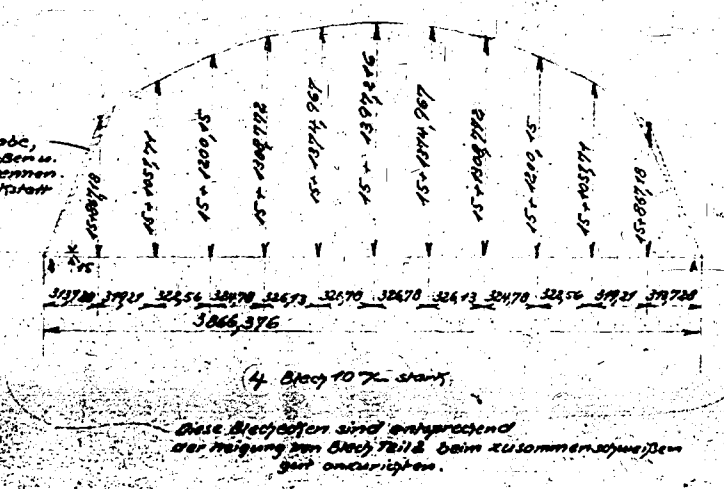 ßen u.
ennen.
kstatt
15+1200,15
15+1308,772
15+1374,967
15+1374,967
15+1308,772
15+1200,15
15
313,728 319,21 322,56 324,78 326,13 326,78 326,78 326,13 324,78 322,56 319,21 313,728
3866,376
4 Blech 10 stark.
Diese Blechecken sind entsprechend
der Neigung von Blech Teil 2 beim zusammenschweißen
gut anzurichten.